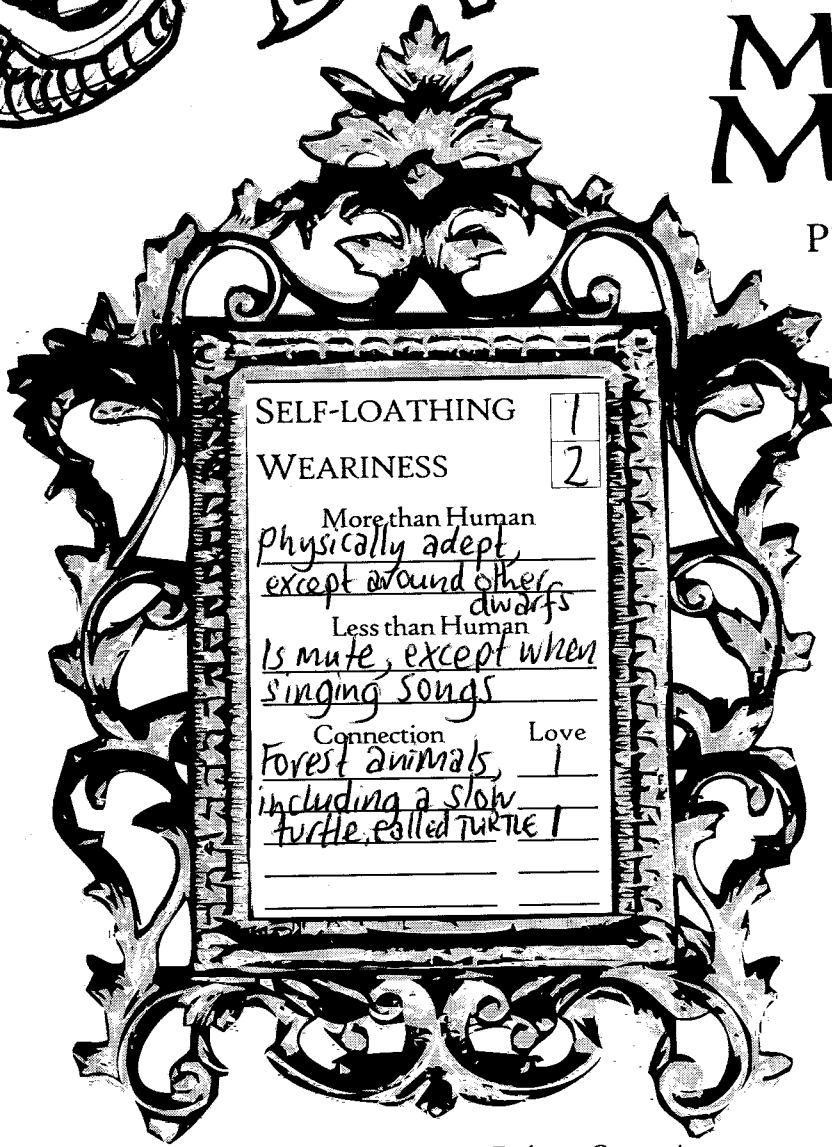 M
M
P
SELF-LOATHING 1
WEARINESS 2
More than Human
Physically adept,
except around other
dwarfs
Less than Human
Is mute, except when
singing songs
Connection Love
Forest animals, 1
including a slow
turtle, called TURTLE 1